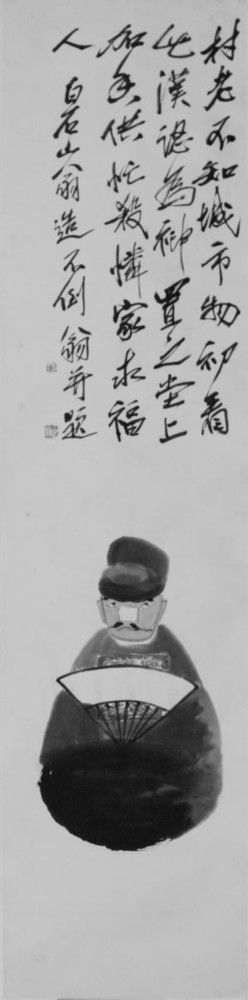 村老不知城市物初看
此漢認為神置之堂上
加香供忙殺隣家求福
人 白石山翁造不倒翁并題